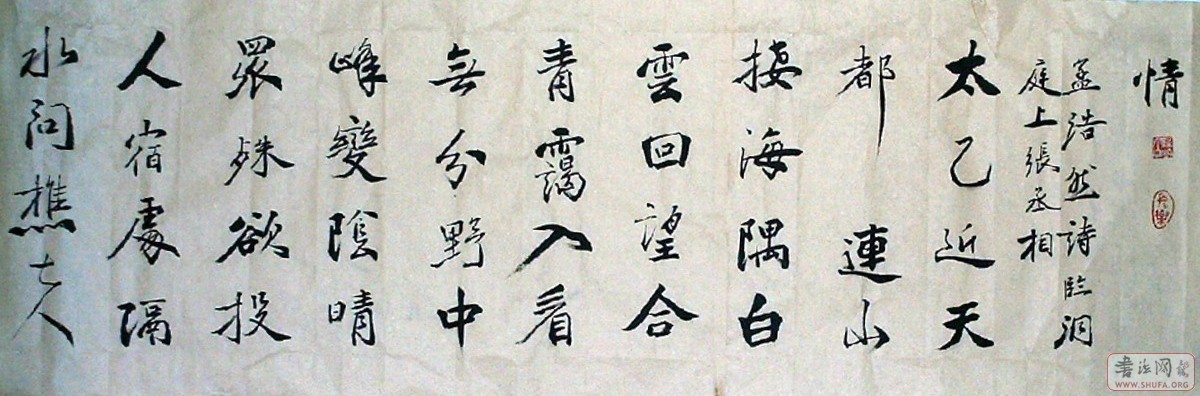 情
孟浩然詩临洞
庭上張丞相
太乙近天
都連山
接海隅白
雲回望合
青靄入看
無分野中
峰變陰晴
眾殊欲投
人宿處隔
水問樵夫
WWW.SHUFA.ORG